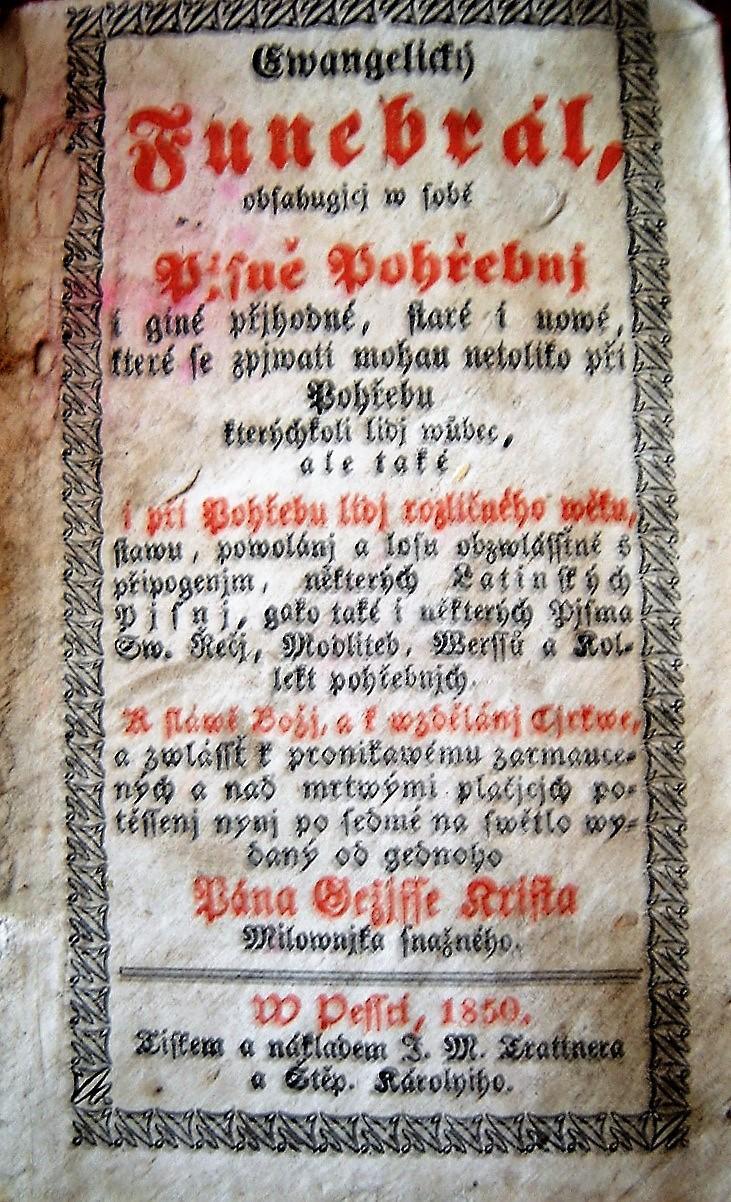 Ewangelický
Funebrál,
obsahugjcj w sobě
Pjsně Pohřebnj
i giné přjhodné, staré i nowé,
které se zpjwati mohau netoliko při
Pohřebu
kterýchkoli lidj wůbec,
ale také
i při Pohřebu lidj rozličného wěku,
stawu, powolánj a losu obzwlásstně s
připogenjm, některých Latinských
Pjsnj, gako také i některých Pjsma
Sw. Řečj, Modliteb, Werssů a Kol-
lekt pohřebnjch.
K sláwě Božj, a k wzdělánj Cjrkwe,
a zwlásstˇ k pronikawému zarmauce-
ných a nad mrtwými plačjcjch po-
těssenj nynj po sedmé na swětlo wy-
daný od gednoho
Pána Gežjsse Krista
Milownjka snažného.
W Pessti, 1850.
Tiskem a nákladem J. M. Trattnera
a Štěp. Károlyiho.